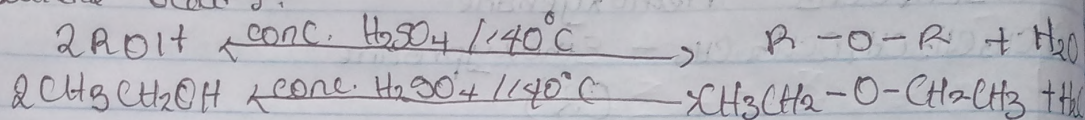 2ROH ⟵conc. H2SO4 /140°C⟶ R-O-R + H2O
2CH3CH2OH ⟵conc. H2SO4 /140°C⟶ CH3CH2-O-CH2CH3 +